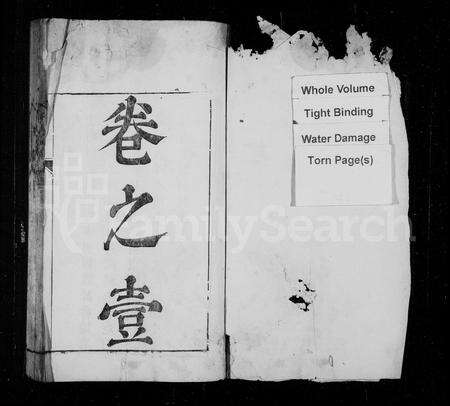 卷之壹
Whole Volume
Tight Binding
Water Damage
Torn Page(s)
FamilySearch